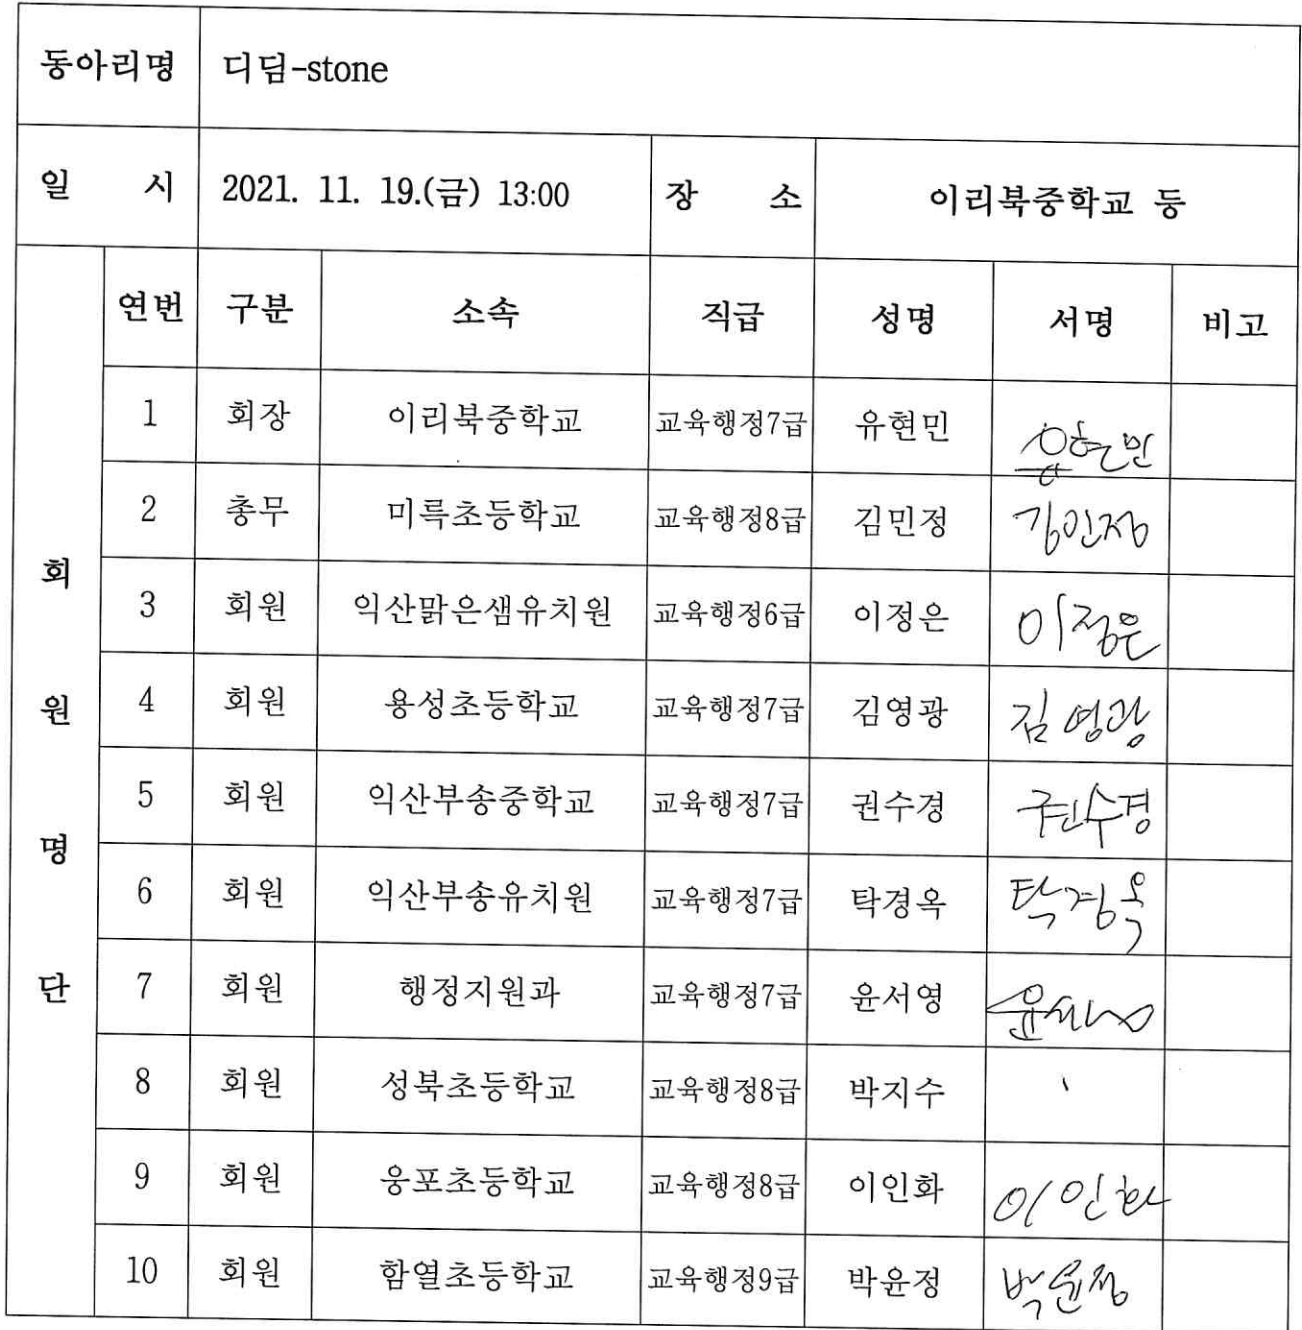 동아리명 디딤-stone
일 시 2021. 11. 19.(금) 13:00 장 소 이리북중학교 등
회원명단
연번 구분 소속 직급 성명 서명 비고
1 회장 이리북중학교 교육행정7급 유현민 유현민
2 총무 미륵초등학교 교육행정8급 김민정 김민정
3 회원 익산맑은샘유치원 교육행정6급 이정은 이정은
4 회원 용성초등학교 교육행정7급 김영광 김영광
5 회원 익산부송중학교 교육행정7급 권수경 권수경
6 회원 익산부송유치원 교육행정7급 탁경옥 탁경옥
7 회원 행정지원과 교육행정7급 윤서영 윤서영
8 회원 성북초등학교 교육행정8급 박지수
9 회원 웅포초등학교 교육행정8급 이인화 이인화
10 회원 함열초등학교 교육행정9급 박윤정 박윤정